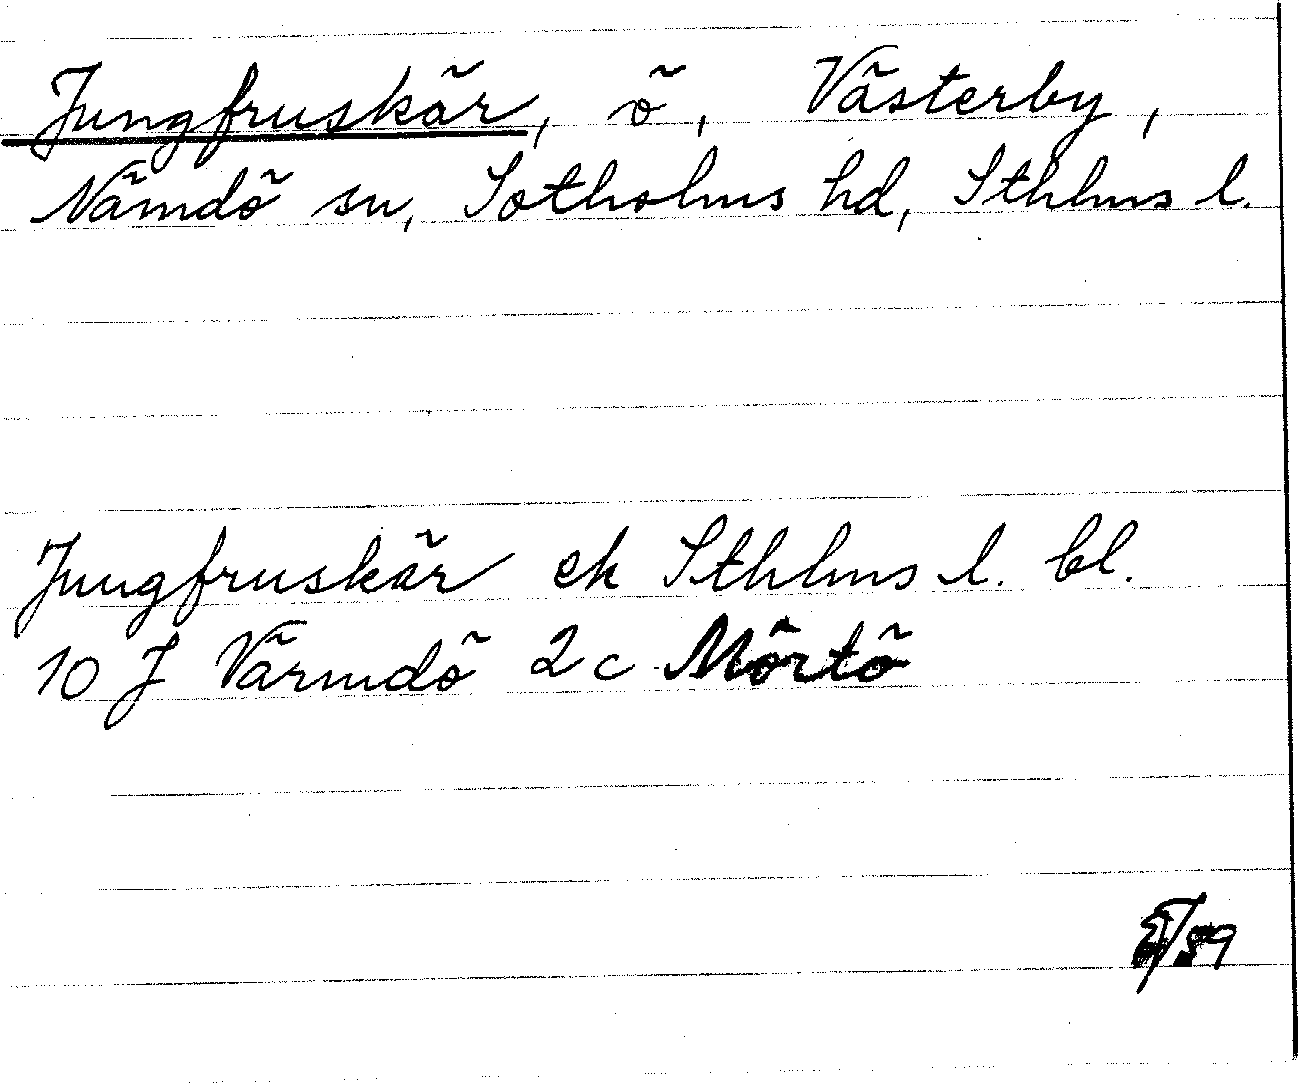 Jungfruskär, ö, Västerby,
Nämdö sn, Sotholms hd, Sthlms l.
Jungfruskär ek Sthlms l. bl.
10 J Värmdö 2c Mörtö
/59